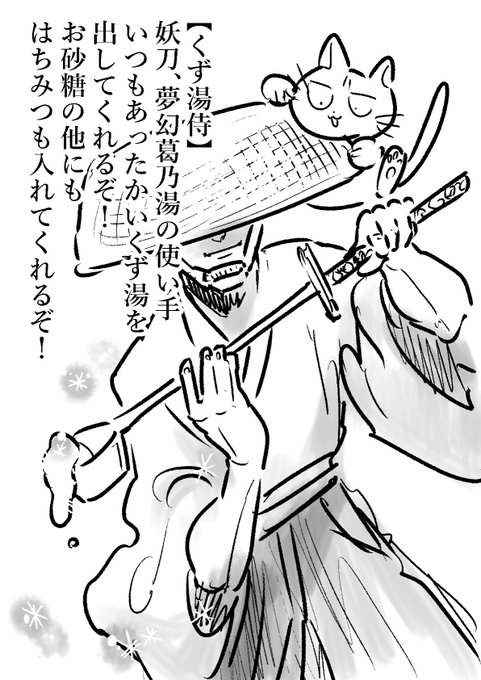 【くず湯侍】
妖刀、夢幻葛乃湯の使い手
いつもあったかいくず湯を
出してくれるぞ！
お砂糖の他にも
はちみつも入れてくれるぞ！